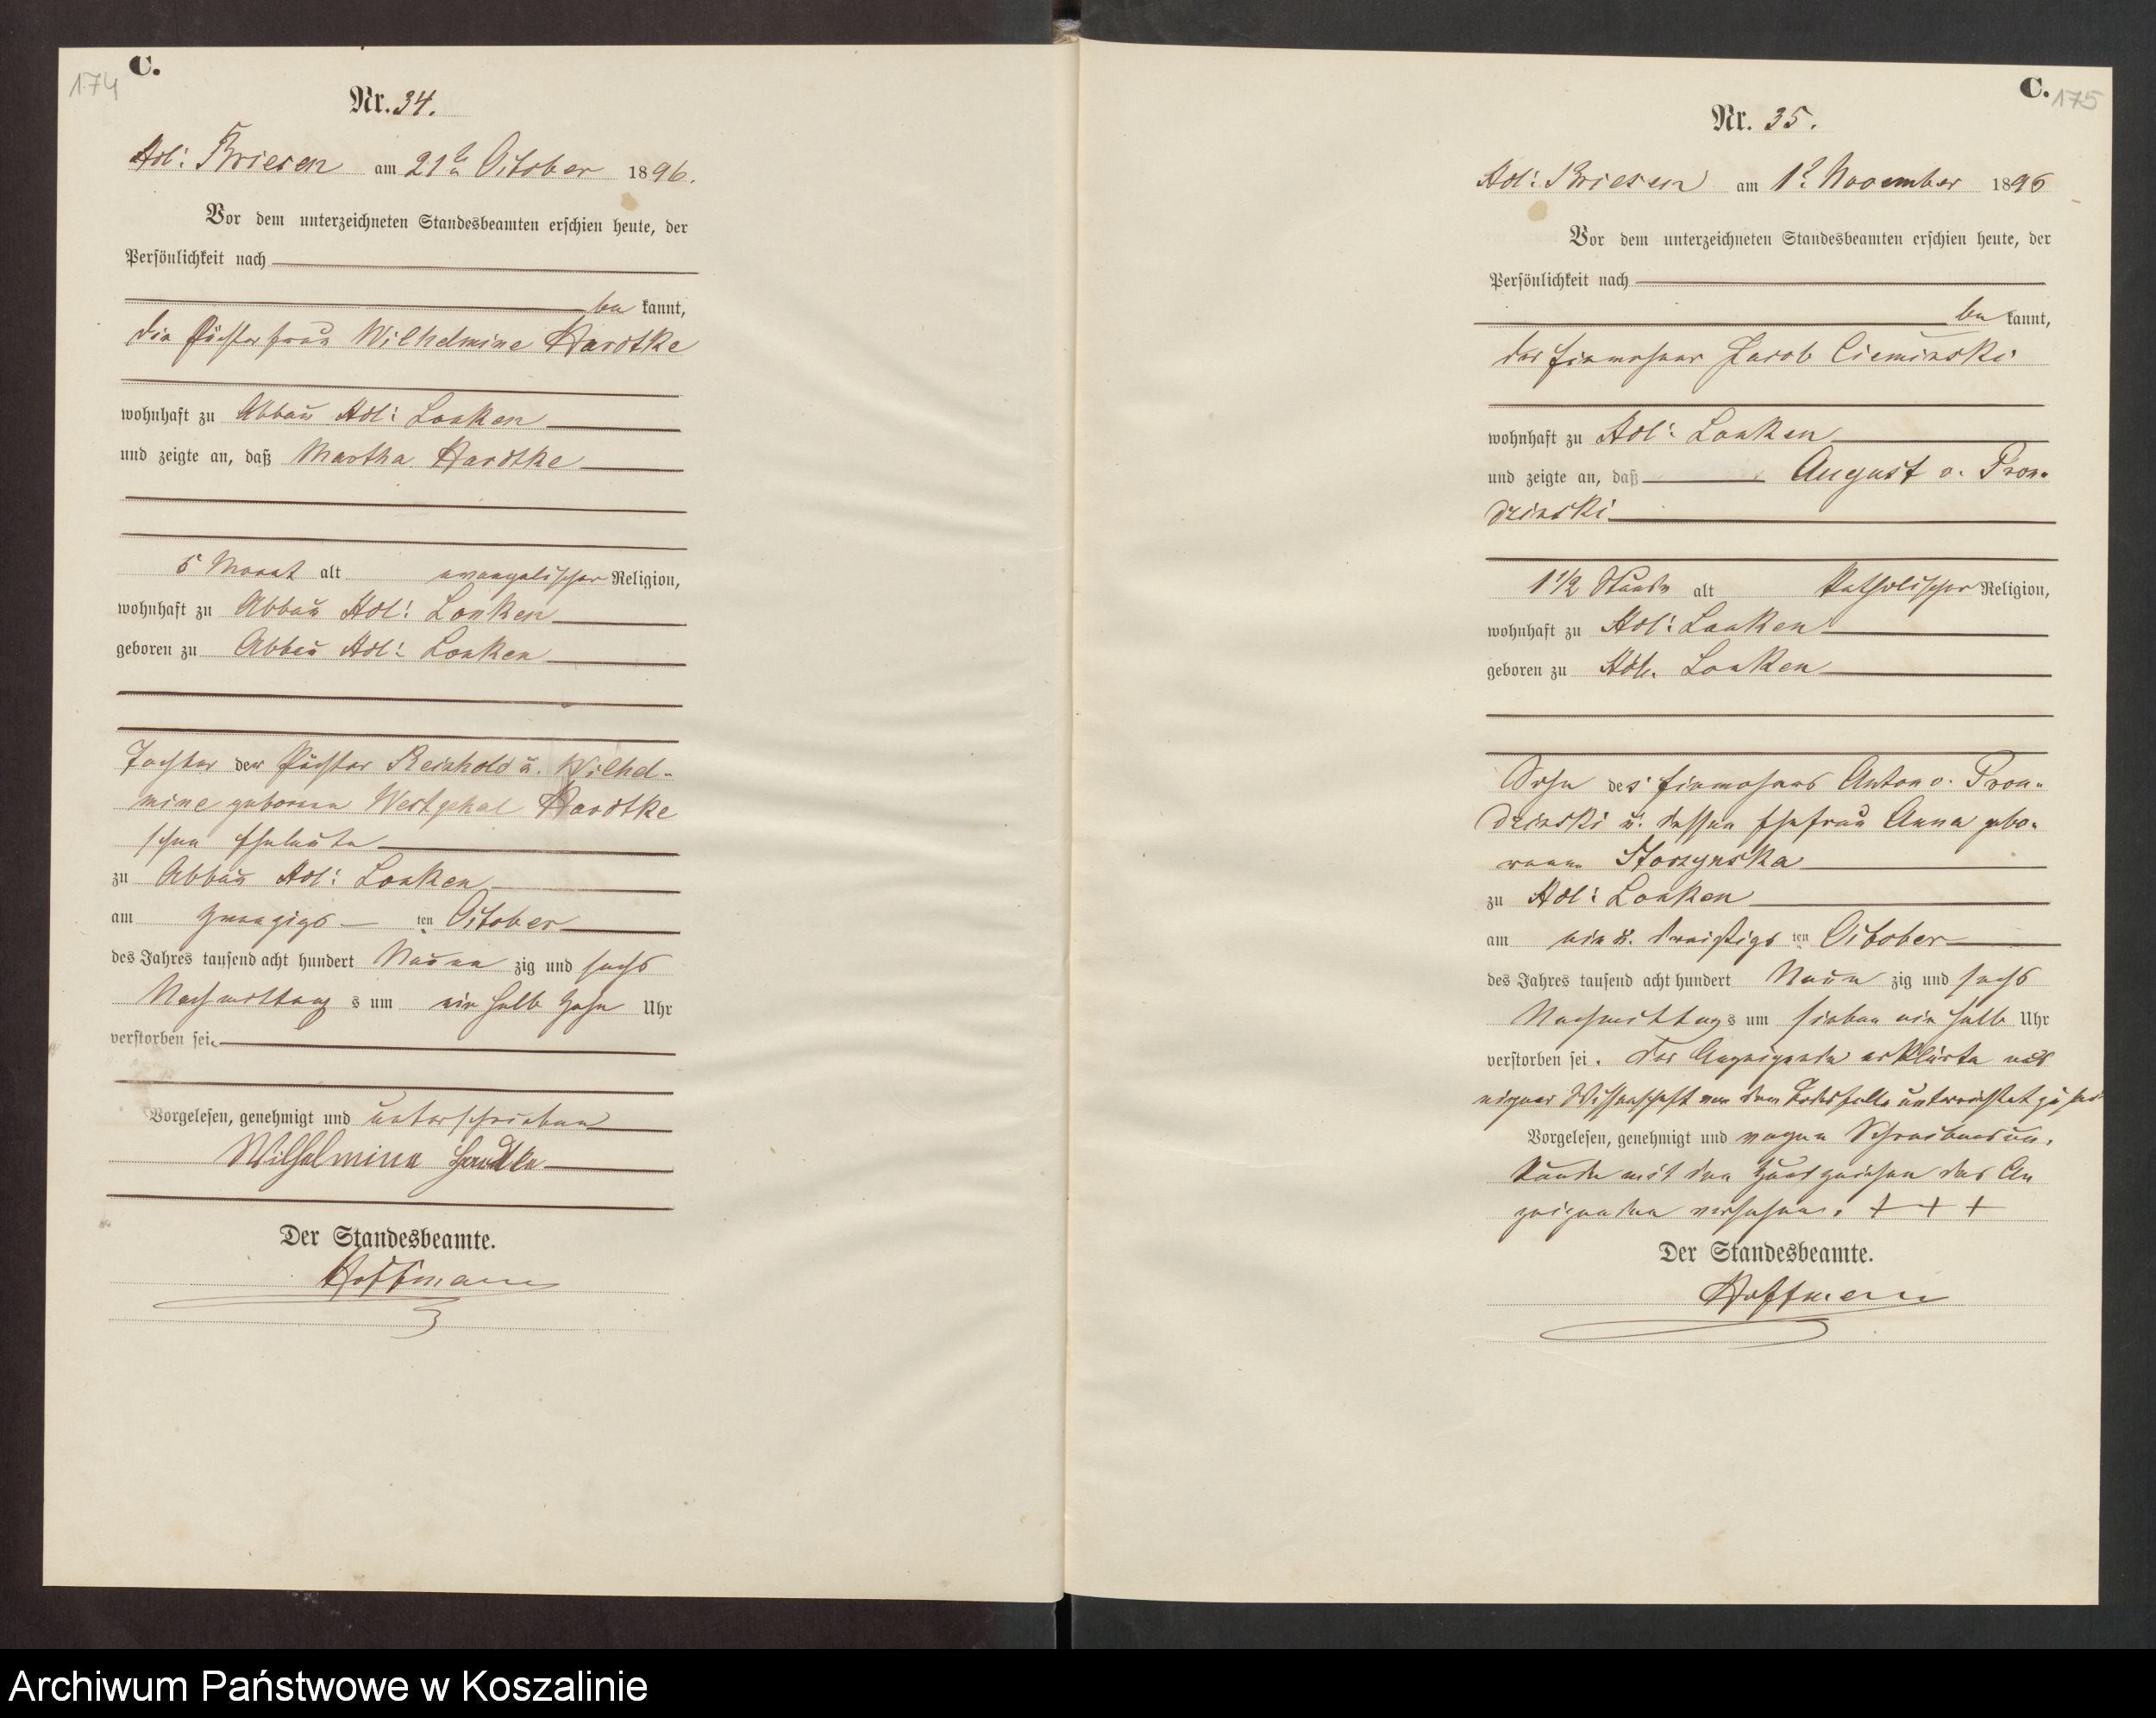 174
C.
Nr. 34.
Adl: Briesen am 21t October 1896.
Vor dem unterzeichneten Standesbeamten erschien heute, der
Persönlichkeit nach
be kannt,
die Pächterfrau Wilhelmine Hardtke
wohnhaft zu Abbau Adl: Lonken
und zeigte an, daß Martha Hardtke
5 Monat alt evangelischer Religion,
wohnhaft zu Abbau Adl: Lonken
geboren zu Abbau Adl: Lonken
Tochter der Pächter Reinhold u. Wilhel-
mine geborenen Westphal Hardtke
schen Eheleute
zu Abbau Adl: Lonken
am zwanzigs ten October
des Jahres tausend acht hundert Neun zig und sechs
Nachmittag s um ein halb zehn Uhr
verstorben sei.
Vorgelesen, genehmigt und unterschrieben
Wilhelmine
Der Standesbeamte.
Hoffmann
C.
175
Nr. 35.
Adl: Briesen am 1t November 1896
Vor dem unterzeichneten Standesbeamten erschien heute, der
Persönlichkeit nach
be kannt,
der Einwohner Jacob Cieminski
wohnhaft zu Adl: Lonken
und zeigte an, daß August v. Pron-
dzinski
1 1/2 Stunde alt katholischer Religion,
wohnhaft zu Adl: Lonken
geboren zu Adl. Lonken
Sohn des Einwohners Anton v. Pron-
dzinski u. dessen Ehefrau Anna gebo-
renen Storzynska
zu Adl: Lonken
am ein u. dreißigs ten October
des Jahres tausend acht hundert Neun zig und sechs
Nachmittag s um sieben ein halb Uhr
verstorben sei. Der Anzeigende erklärte aus
eigner Wissenschaft von dem Todesfalle unterrichtet zu sein
Vorgelesen, genehmigt und wegen Schreibensun-
kunde mit den Handzeichen des An
zeigenden versehen. + + +
Der Standesbeamte.
Hoffmann
Archiwum Państwowe w Koszalinie